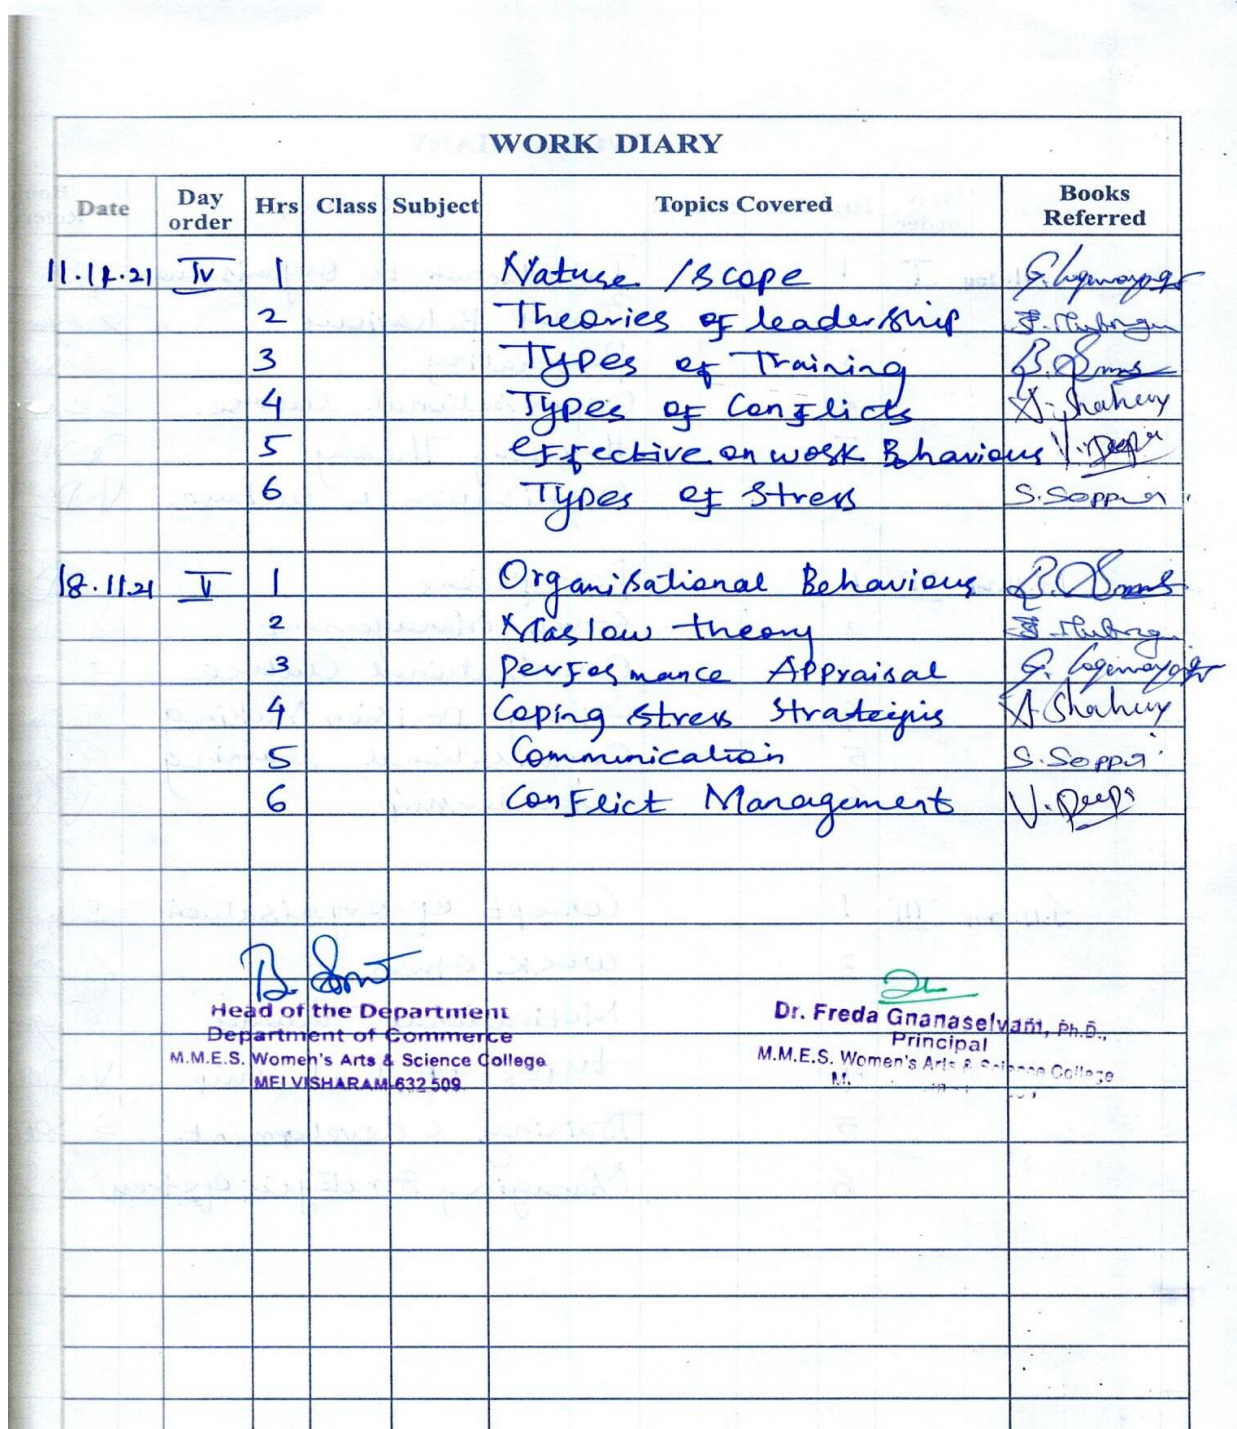 WORK DIARY
Date Day order Hrs Class Subject Topics Covered Books Referred
11.11.21 IV 1 Nature / scope
2 Theories of leadership
3 Types of Training
4 Types of Conflicts A. Shaheny
5 effective on work Bhaviour V. Deepa
6 Types of Stress S. Soppia
18.11.21 V 1 Organisational Behaviour
2 Maslow theory
3 Performance Appraisal
4 Coping stress Strateigis A Shaheny
5 Communication S. Soppia
6 Conflict Management V. Deepa
Head of the Department
Department of Commerce
M.M.E.S. Women's Arts & Science College
MELVISHARAM-632 509.
Dr. Freda Gnanaselvam, Ph.D.,
Principal
M.M.E.S. Women's Arts & Science College